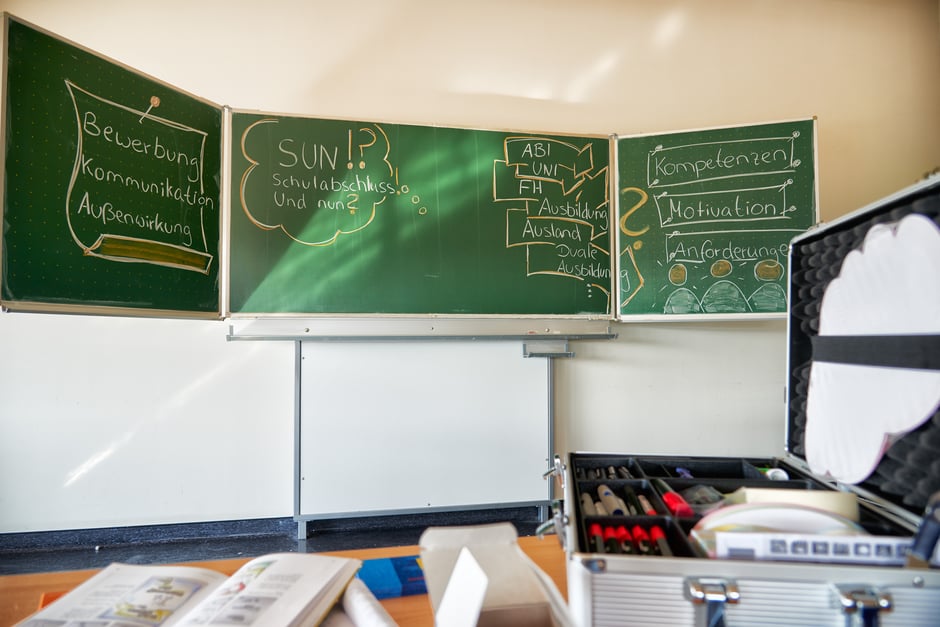 Bewerbung
Kommunikation
Außenwirkung
SUN!?
Schulabschluss!
Und nun?
ABI
UNI
FH
Ausbildung
Ausland
Duale
Ausbildung
...
?
Kompetenzen
Motivation
Anforderunge